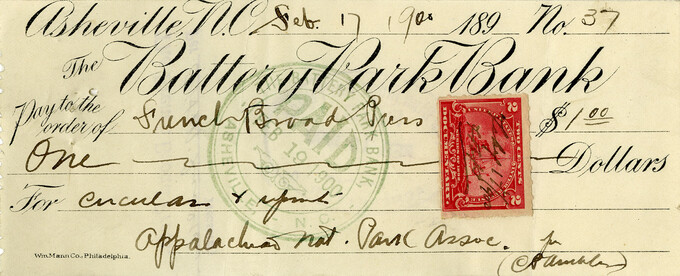 Asheville, N.C. Feb. 17 1900 189 No. 37
The Battery Park Bank
Pay to the order of French Broad Press $1.00
One Dollars
For circular & print
Appalachian Nat. Park Assoc.
per
C P Ambler
Wm. Mann Co., Philadelphia.
BATTERY PARK BANK,
PAID
FEB 19 1900
ASHEVILLE, N.C.
DOCUMENTARY
2
TWO CENTS
2